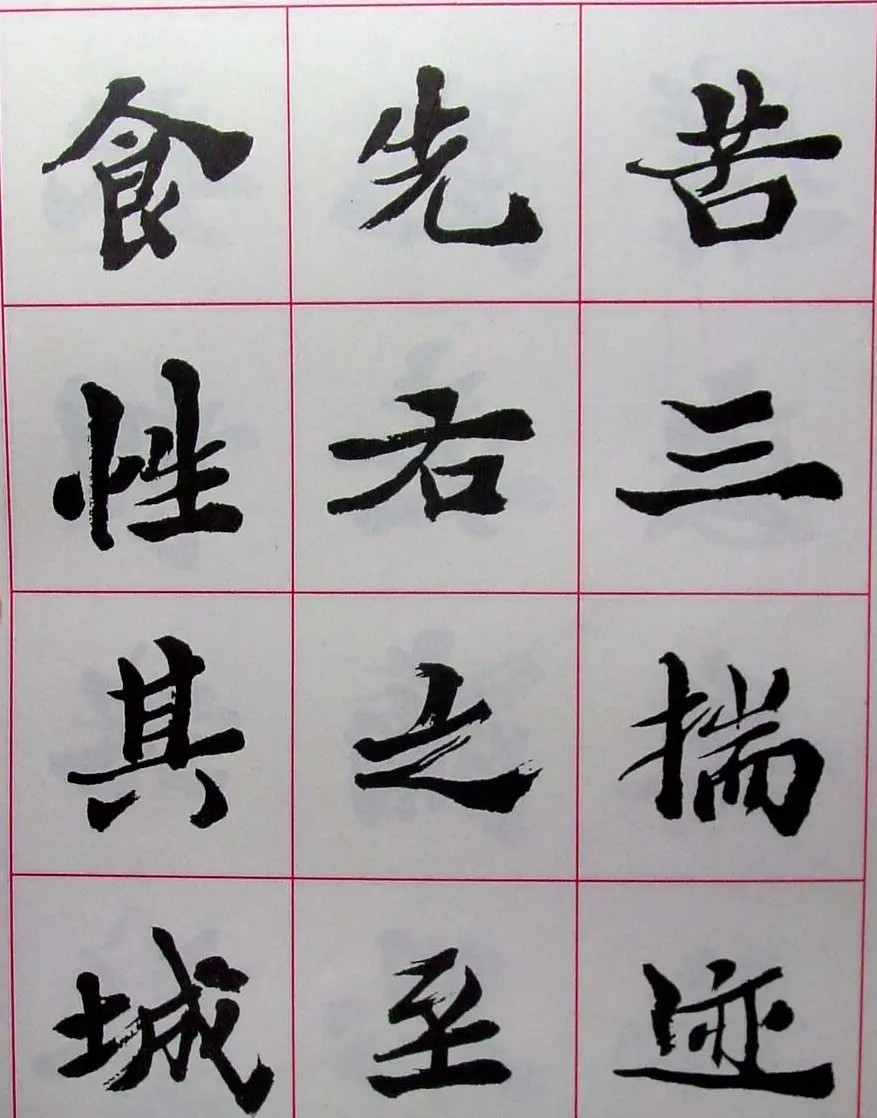 苦三揣迹
先右之至
食性其城